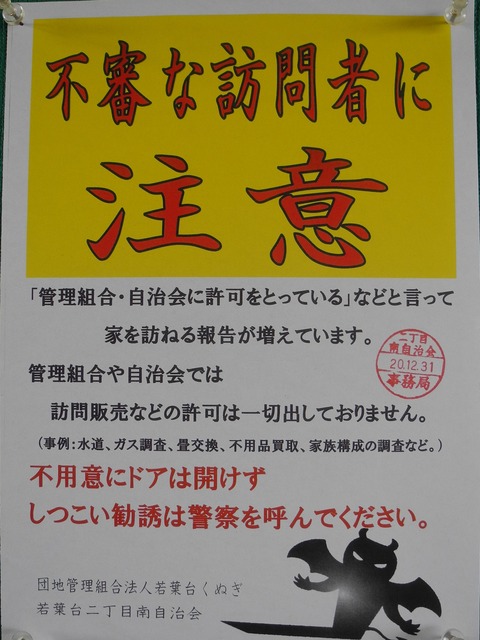 不審な訪問者に
注意
「管理組合・自治会に許可をとっている」などと言って
家を訪ねる報告が増えています。
二丁目
南自治会
20.12.31
事務局
管理組合や自治会では
訪問販売などの許可は一切出しておりません。
（事例：水道、ガス調査、畳交換、不用品買取、家族構成の調査など。）
不用意にドアは開けず
しつこい勧誘は警察を呼んでください。
団地管理組合法人若葉台くぬぎ
若葉台二丁目南自治会